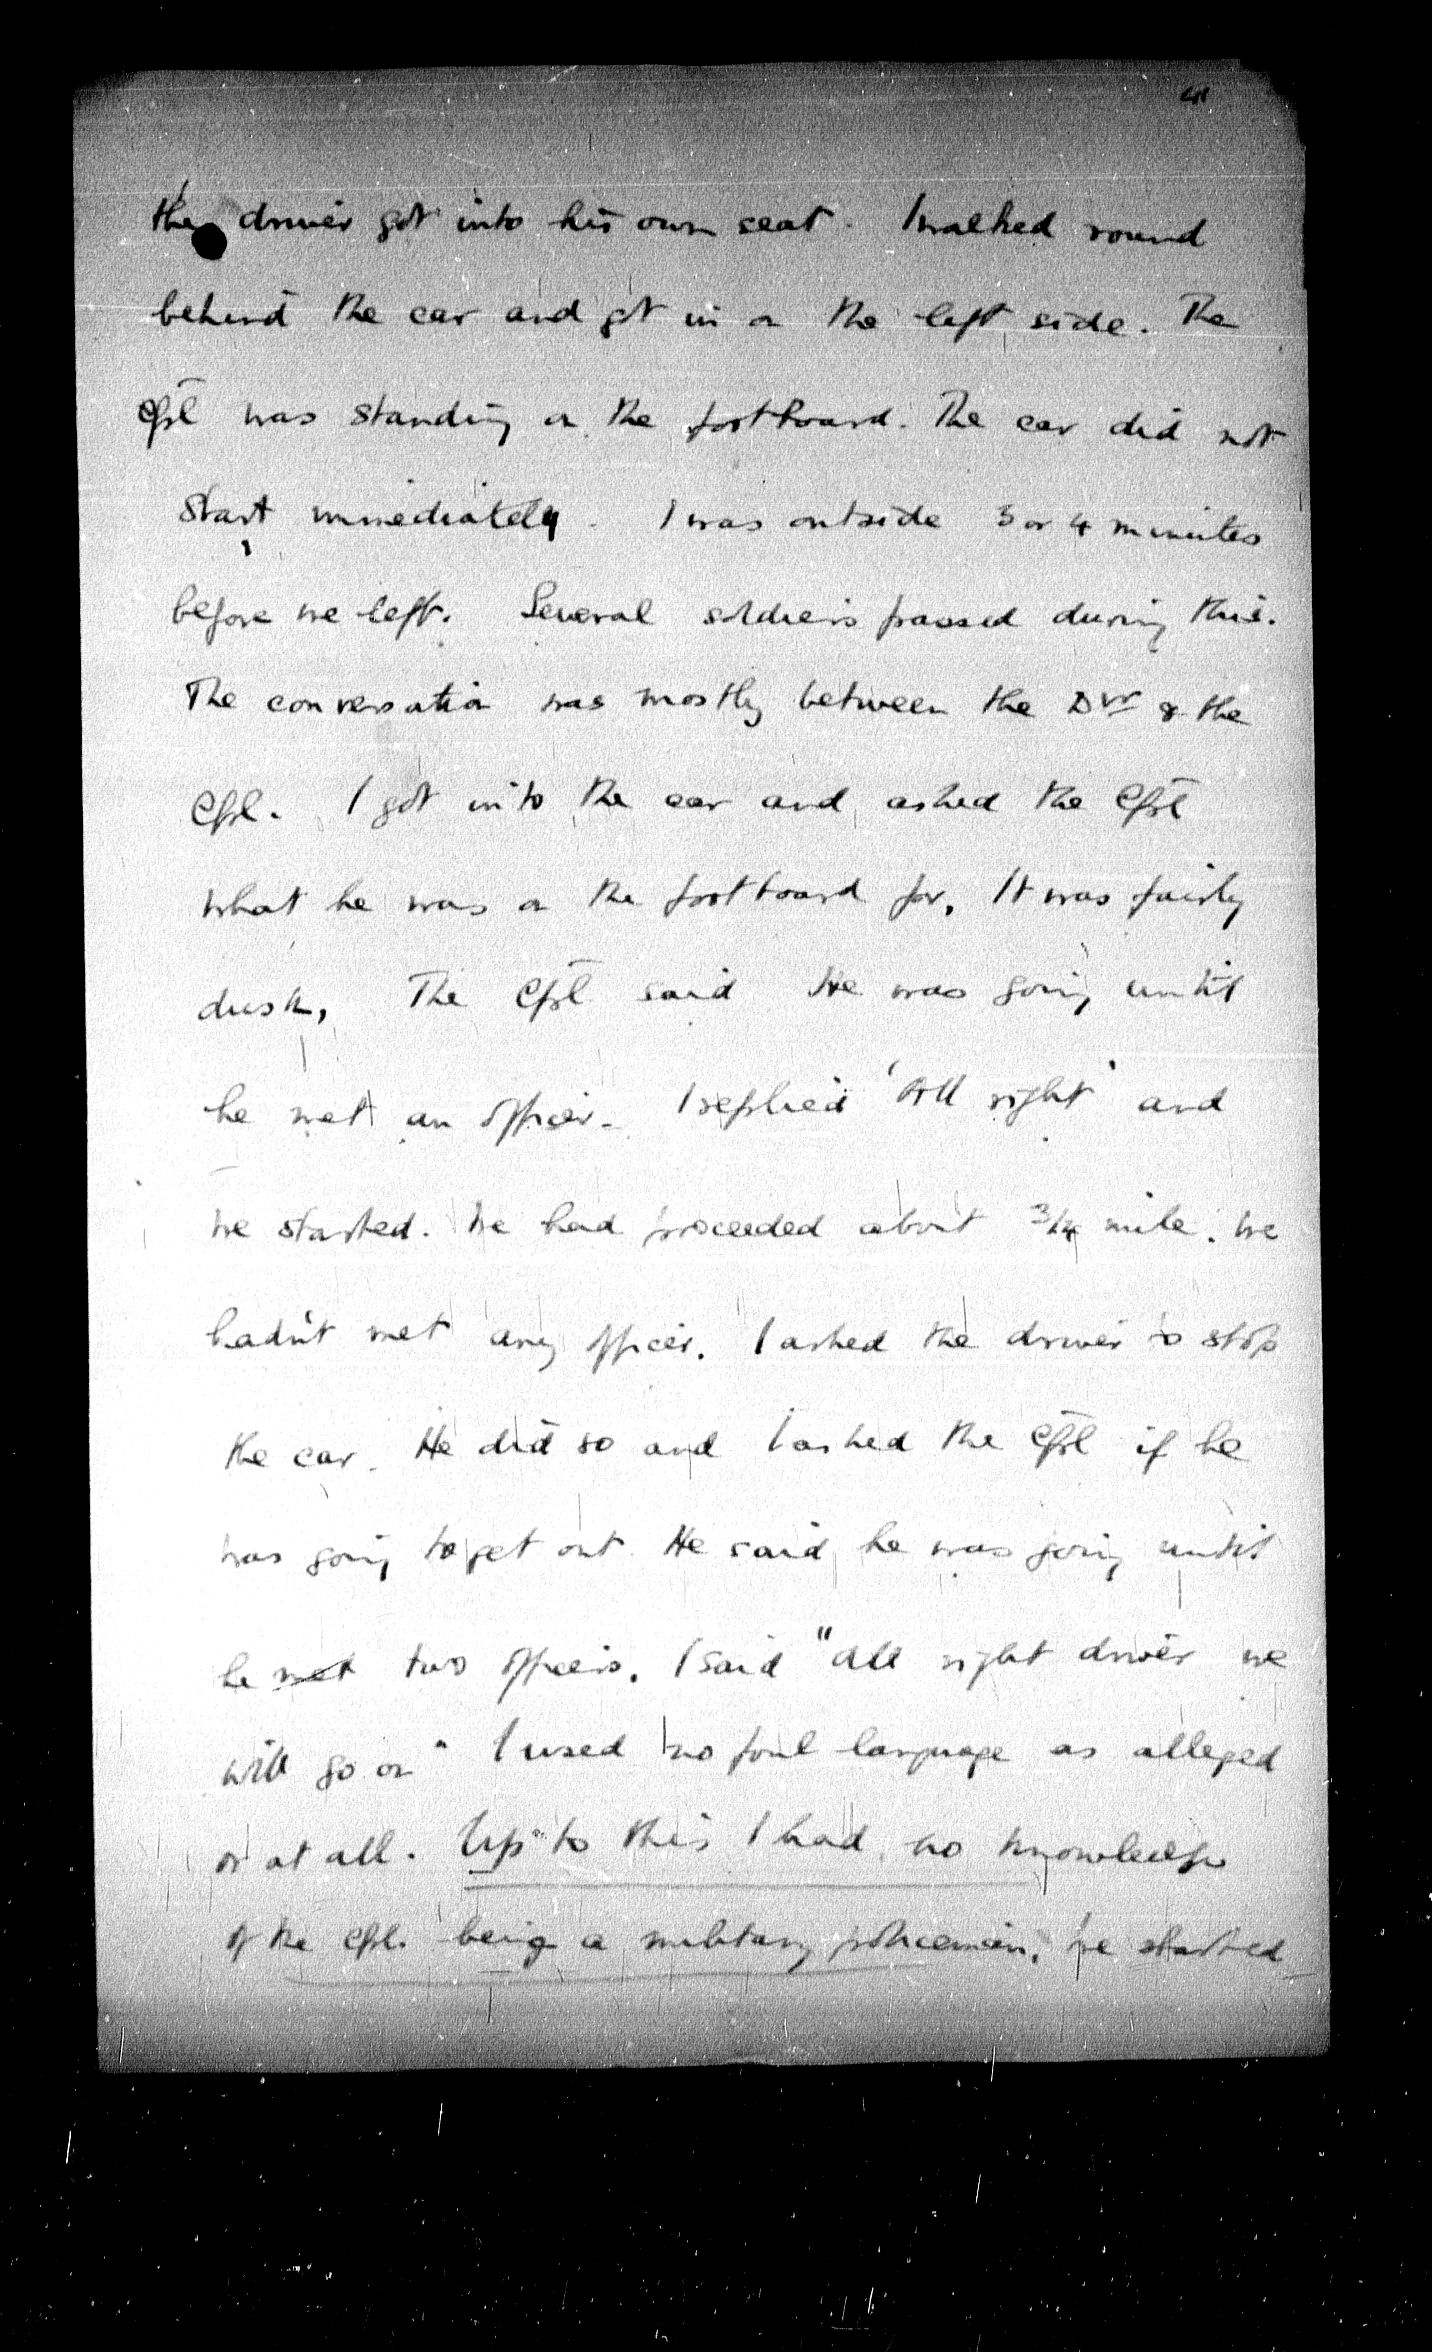 the driver got into his own seat. I walked round
behind the car and got in on the left side. The
Cpl was standing on the footboard. The car did not
start immediately. I was outside 3 or 4 minutes
before we left. Several soldiers passed during this.
The conversation was mostly between the Dvr & the
Cpl. I got into the car and asked the Cpl
what he was on the footboard for. It was fairly
dusk, The Cpl said He was going until
he met an officer. I replied 'All right' and
we started. We had proceeded about 3/4 mile. We
hadn't met any officer. I asked the driver to stop
the car. He did so and I asked the Cpl if he
was going to get out. He said he was going until
he met two officers. I said "All right driver we
will go on" I used no foul language as alleged
or at all. Up to this I had no knowledge
of the Cpl. being a military policeman. We started